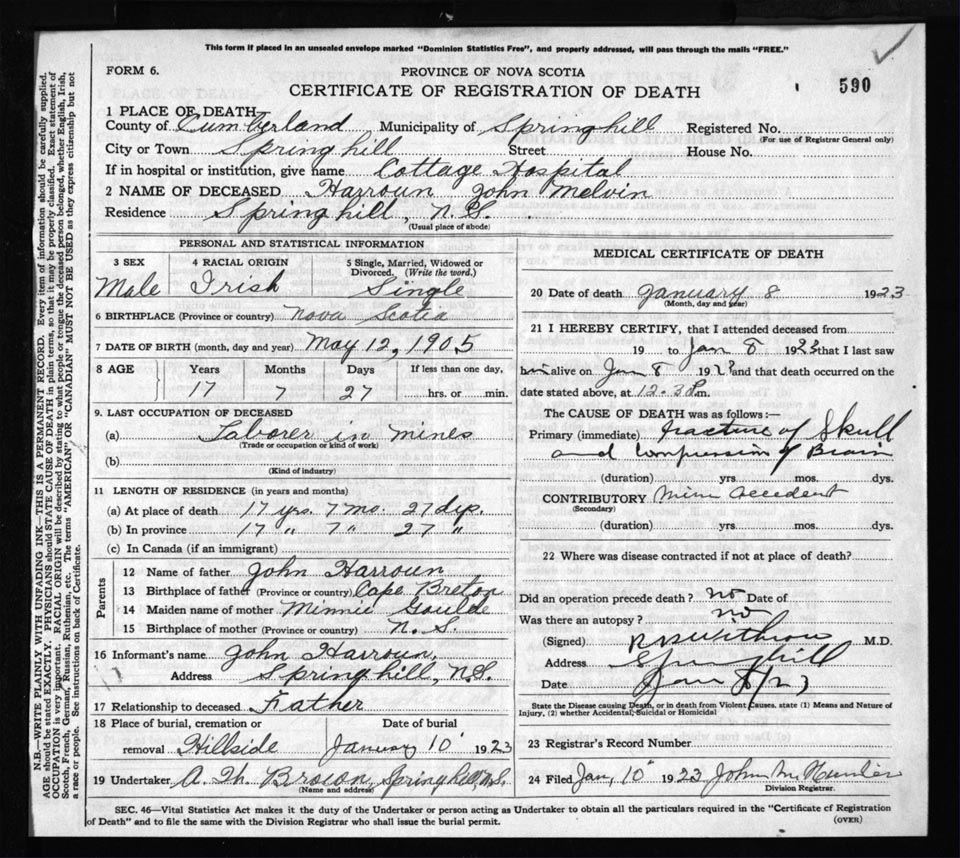 This form if placed in an unsealed envelope marked "Dominion Statistics Free", and properly addressed, will pass through the mails "FREE."
FORM 6.
PROVINCE OF NOVA SCOTIA
CERTIFICATE OF REGISTRATION OF DEATH
590
1 PLACE OF DEATH—
County of Cumberland Municipality of Springhill Registered No.
(For use of Registrar General only)
City or Town Springhill Street House No.
If in hospital or institution, give name Cottage Hospital
2 NAME OF DECEASED Harroun John Melvin
Residence Springhill, N.S.
(Usual place of abode)
PERSONAL AND STATISTICAL INFORMATION
3 SEX 4 RACIAL ORIGIN 5 Single, Married, Widowed or Divorced. (Write the word.)
Male Irish Single
6 BIRTHPLACE (Province or country) Nova Scotia
7 DATE OF BIRTH (month, day and year) May 12, 1905
8 AGE Years Months Days If less than one day,
17 7 27 hrs. or min.
9. LAST OCCUPATION OF DECEASED
(a) Laborer in mines
(Trade or occupation or kind of work)
(b)
(Kind of industry)
11 LENGTH OF RESIDENCE (in years and months)
(a) At place of death 17 yrs. 7 mo. 27 dys.
(b) In province 17 " 7 " 27 "
(c) In Canada (if an immigrant)
Parents
12 Name of father John Harroun
13 Birthplace of father (Province or country) Cape Breton
14 Maiden name of mother Minnie Goulde
15 Birthplace of mother (Province or country) N.S.
16 Informant's name John Harroun.
Address Springhill, N.S.
17 Relationship to deceased Father
18 Place of burial, cremation or removal Hillside
Date of burial January 10 1923
19 Undertaker A. Th. Brown, Springhill, N.S.
(Name and address)
MEDICAL CERTIFICATE OF DEATH
20 Date of death January 8 1923
(Month, day and year)
21 I HEREBY CERTIFY, that I attended deceased from
19 to Jan 8 1923 that I last saw
him alive on Jan 8 192? and that death occurred on the
date stated above, at 12-30 P.m.
The CAUSE OF DEATH was as follows:—
Primary (immediate) Fracture of Skull
and Compression of Brain
(duration) yrs. mos. dys.
CONTRIBUTORY Mine accident
(Secondary)
(duration) yrs. mos. dys.
22 Where was disease contracted if not at place of death?
Did an operation precede death? no Date of
Was there an autopsy? no
(Signed) Withrow M.D.
Address Springhill
Date Jan 8/23
State the Disease causing Death, or in death from Violent Causes. state (1) Means and Nature of
Injury, (2) whether Accidental, Suicidal or Homicidal
23 Registrar's Record Number
24 Filed Jan, 10 1923 John M Hunter
Division Registrar.
SEC. 46—Vital Statistics Act makes it the duty of the Undertaker or person acting as Undertaker to obtain all the particulars required in the "Certificate of Registration
of Death" and to file the same with the Division Registrar who shall issue the burial permit.
(OVER)
N.B.—WRITE PLAINLY WITH UNFADING INK—THIS IS A PERMANENT RECORD. Every item of information should be carefully supplied.
AGE should be stated EXACTLY. PHYSICIANS should STATE CAUSE OF DEATH in plain terms, so that it may be properly classified. Exact statement of
OCCUPATION is very important. RACIAL ORIGIN will be described by stating to what people or tongue the deceased person belonged, whether English, Irish,
Scotch, French, German, Russian, Ruthenian, etc. The terms "AMERICAN" OR "CANADIAN" MUST NOT BE USED as they express citizenship but not
a race or people. See instructions on back of Certificate.